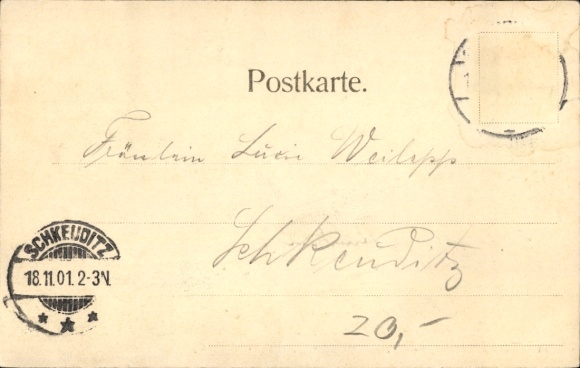 Postkarte.
Fräulein Lucie
Schkeuditz
SCHKEUDITZ
18.11.01.2-3N.
20,-